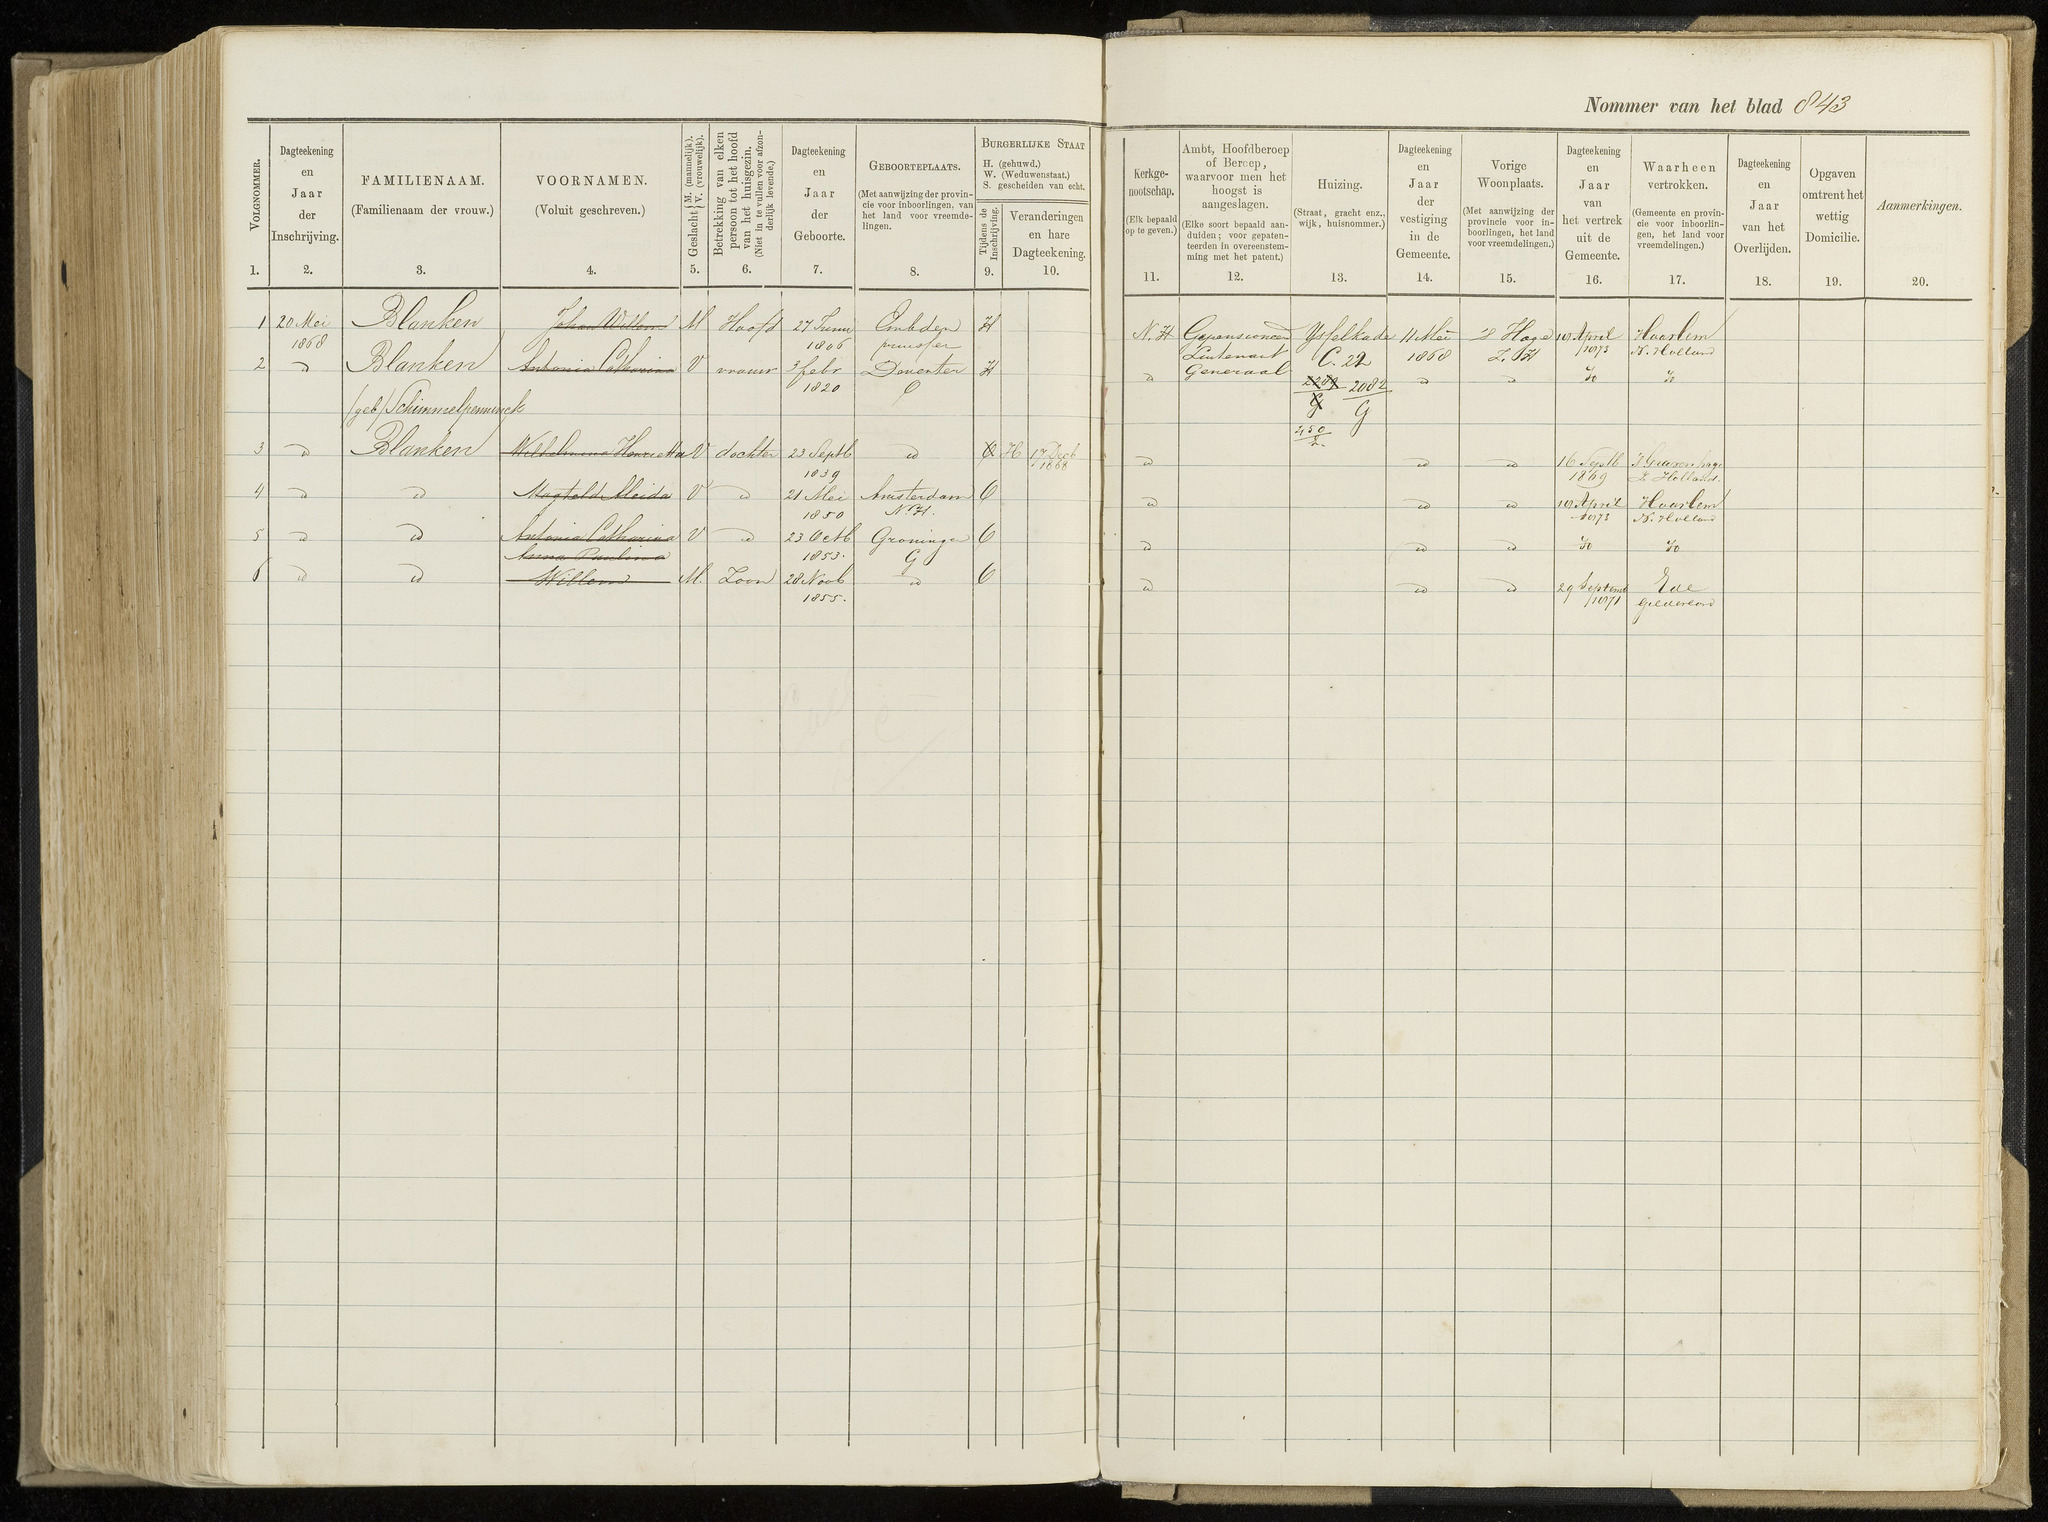 Nommer van het blad 843
VOLGNOMMER.
1.
Dagteekening
en
Jaar
der
Inschrijving.
2.
FAMILIENAAM.
(Familienaam der vrouw.)
3.
VOORNAMEN.
(Voluit geschreven.)
4.
Geslacht { M. (mannelijk). V. (vrouwelijk).
5.
Betrekking van elken
persoon tot het hoofd
van het huisgezin.
(Niet in te vullen voor afzon-
derlijk levende.)
6.
Dagteekening
en
Jaar
der
Geboorte.
7.
GEBOORTEPLAATS.
(Met aanwijzing der provin-
cie voor inboorlingen, van
het land voor vreemde-
lingen.
8.
BURGERLIJKE STAAT
H. (gehuwd.)
W. (Weduwenstaat.)
S. gescheiden van echt.
Tijdens de
Inschrijving.
9.
Veranderingen
en hare
Dagteekening.
10.
Kerkge-
nootschap.
(Elk bepaald
op te geven.)
11.
Ambt, Hoofdberoep
of Beroep,
waarvoor men het
hoogst is
aangeslagen.
(Elke soort bepaald aan-
duiden; voor gepaten-
teerden in overeenstem-
ming met het patent.)
12.
Huizing.
(Straat, gracht enz.,
wijk, huisnommer.)
13.
Dagteekening
en
Jaar
der
vestiging
in de
Gemeente.
14.
Vorige
Woonplaats.
(Met aanwijzing der
provincie voor in-
boorlingen, het land
voor vreemdelingen.)
15.
Dagteekening
en
Jaar
van
het vertrek
uit de
Gemeente.
16.
Waarheen
vertrokken.
(Gemeente en provin-
cie voor inboorlin-
gen, het land voor
vreemdelingen.)
17.
Dagteekening
en
Jaar
van het
Overlijden.
18.
Opgaven
omtrent het
wettig
Domicilie.
19.
Aanmerkingen.
20.
1 20 Mei Blanken Johan Willem M Hoofd 27 Junij Embden H N.H Gepensioneerd Ysselkade 11 Mei 's Hage 10 April Haarlem
1868 1806 Luitenant C. 22 1868 Z. H 1873 N. Holland
2 " Blanken Antonia Catharina V vrouw 3 febr Deventer H " Generaal 2082 " " do do
1820 O G G
(geb) Schimmelpenninck
450
2.
3 " Blanken Wilhelmina Henrietta V dochter 23 Septb " O H 17 Decb " " " 16 Septb 's Gravenhage
1839 1868 1869 Z Holland.
4 " " Magteld Aleida V " 21 Mei Amsterdam O " " " 10 April Haarlem
1850 N.H. 1873 N. Holland
5 " " Antonia Catharina V " 23 Octb Groningen O " " " do do
Anna Paulina 1853. G
6 " " Willem M. Zoon 28 Novb " O " " " 29 Septemb Ede
1855. 1871 Gelderland